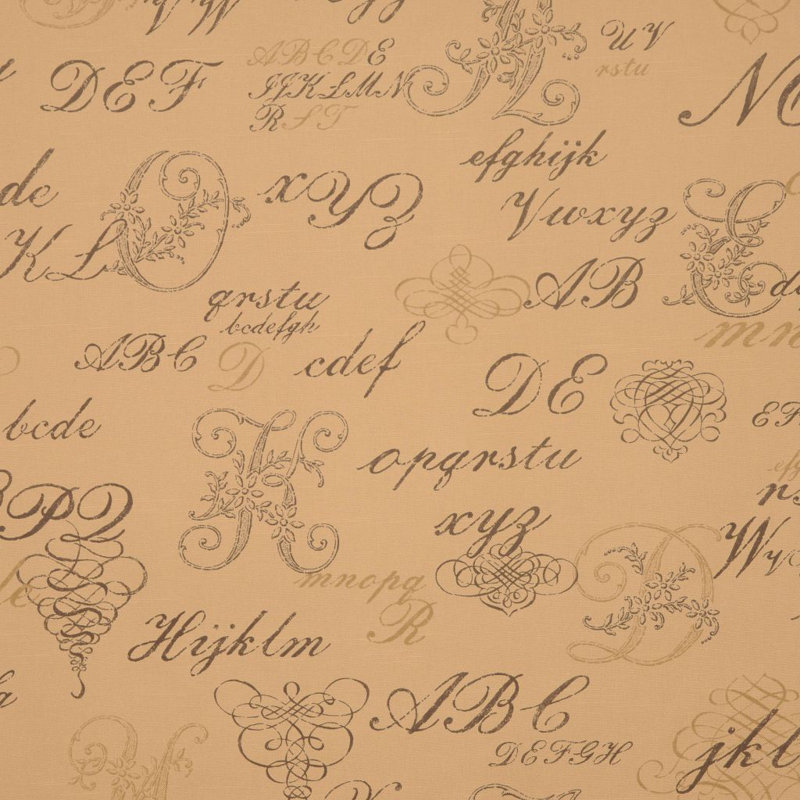 DEF
ABCDE
IJKLMN
RST
UV
rstu
efghijk
Vwxyz
de
O
xyz
KL
qrstu
bcdefgh
AB
ABC
D
cdef
DE
bcde
K
opqrstu
xyz
PQ
mnopq
R
D
Hijklm
ABC
DEFGH
jkl